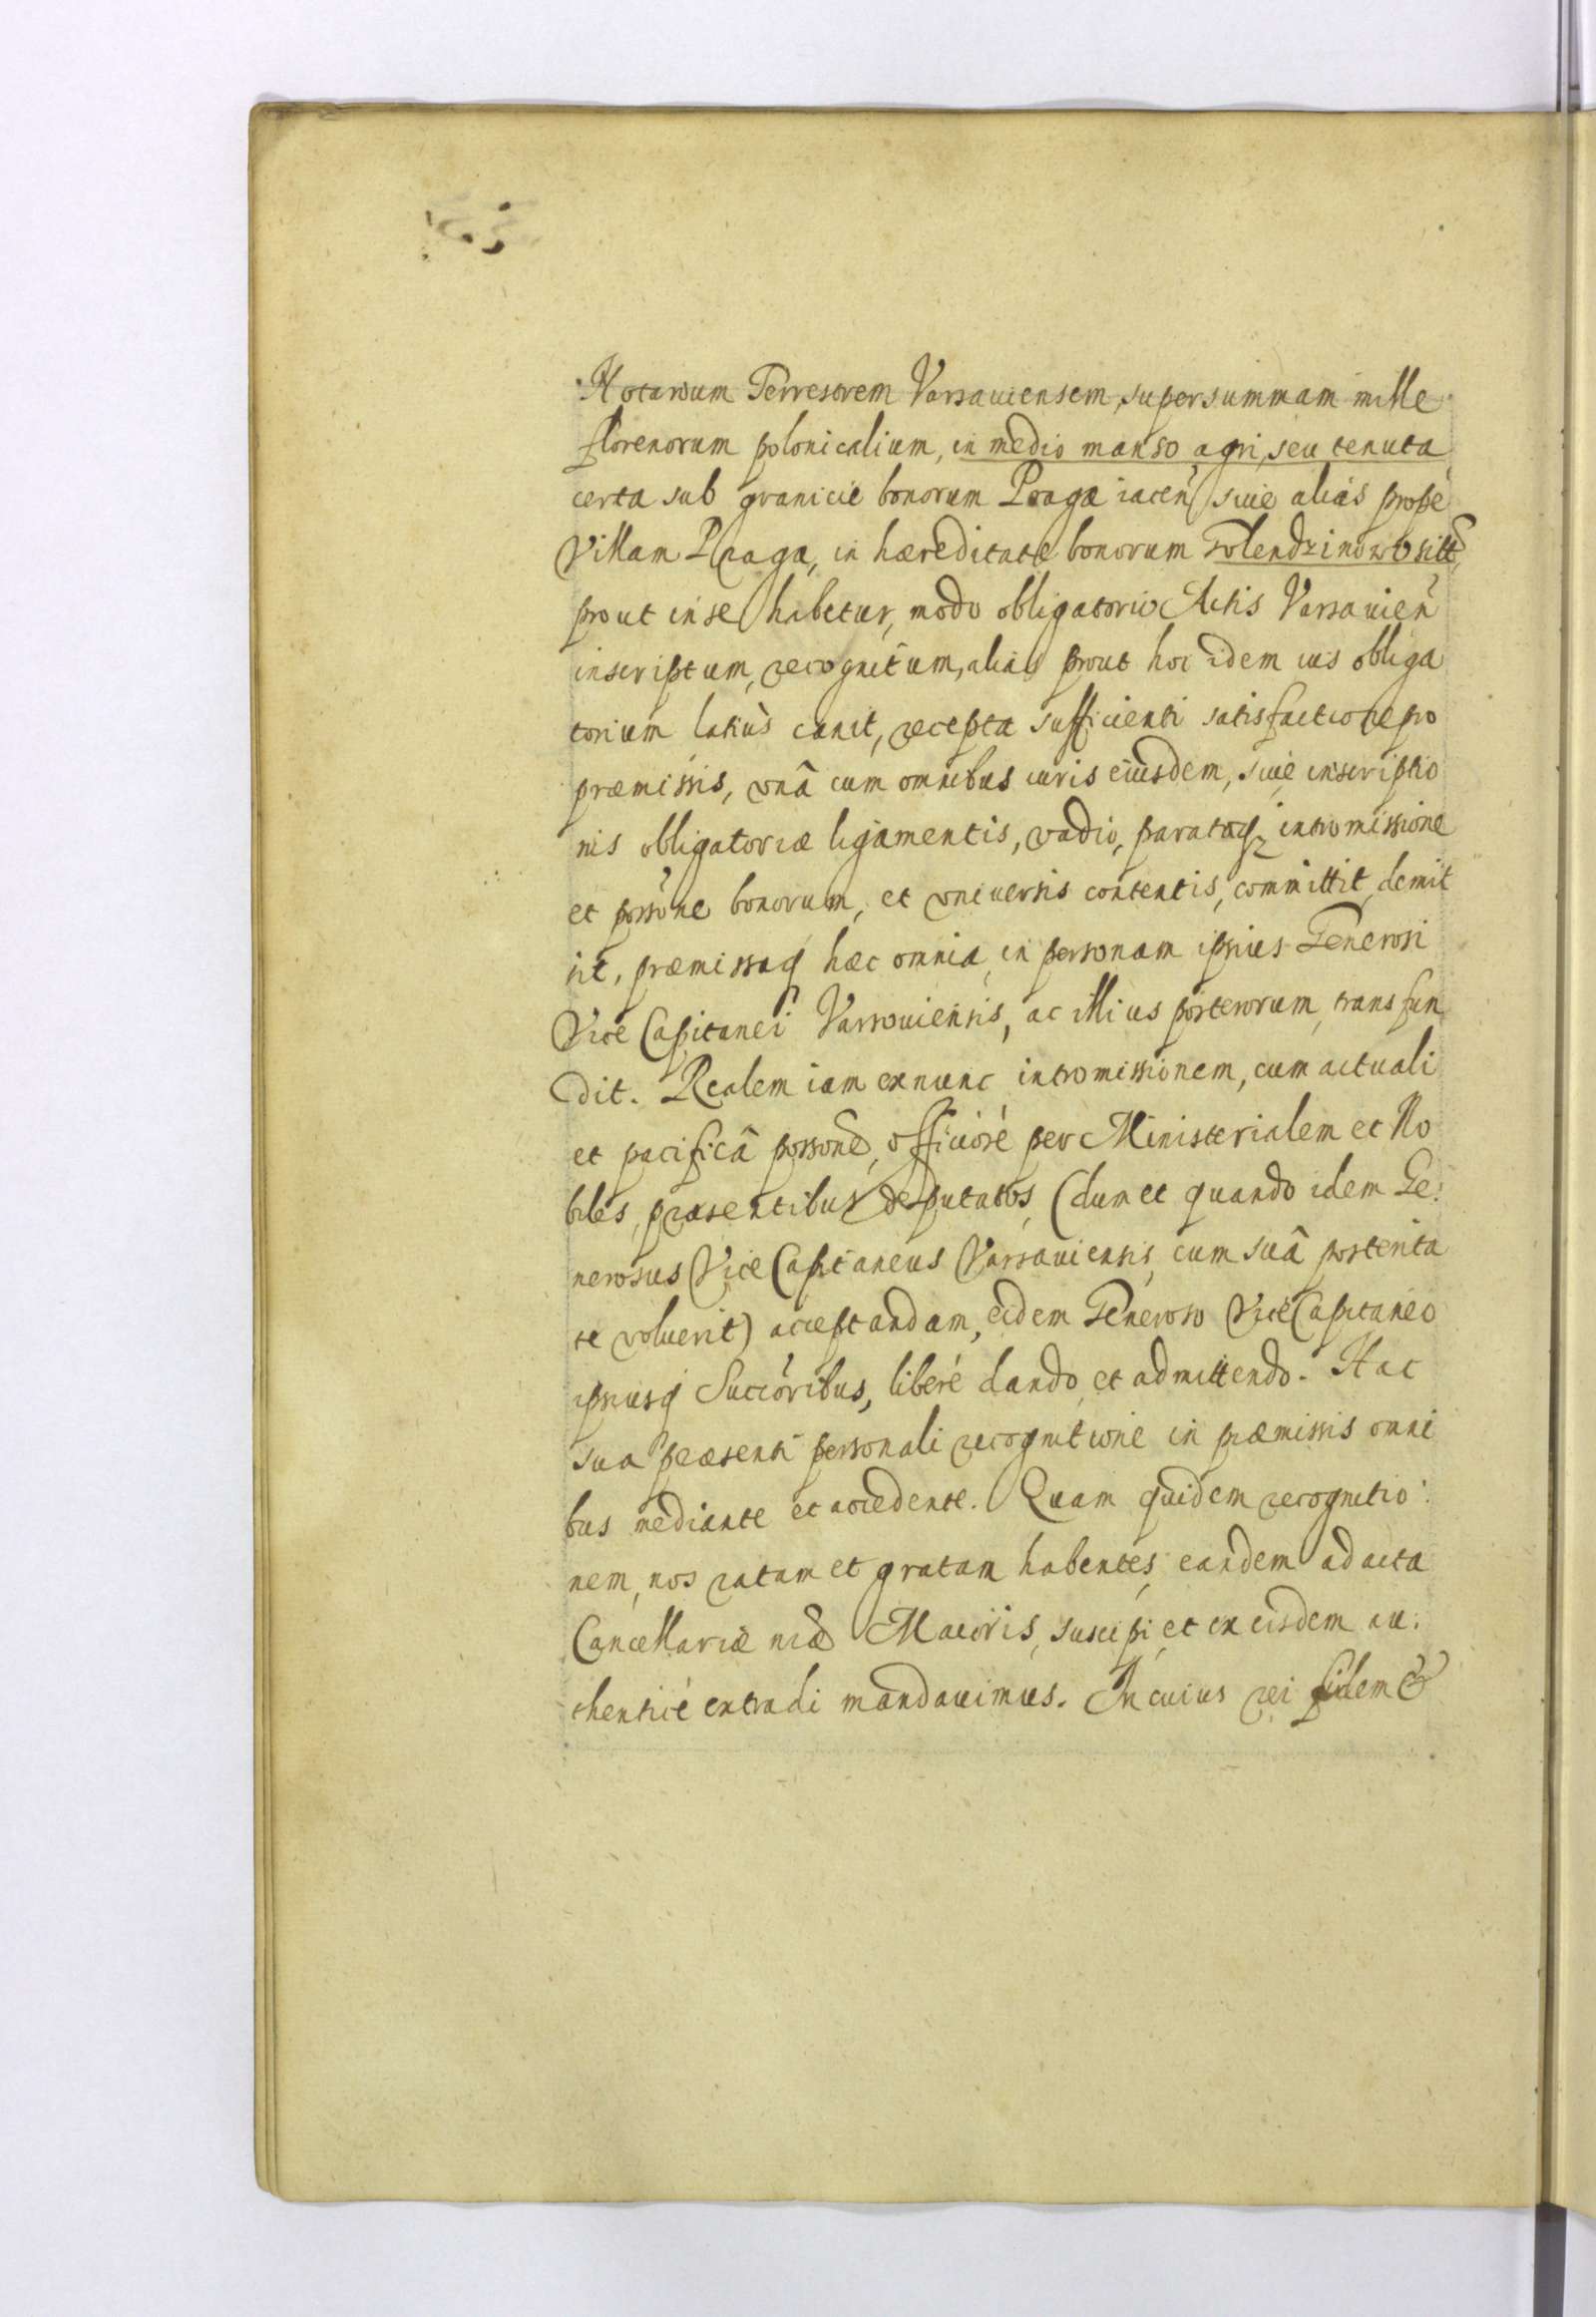 Notarium Terrestrem Varsauiensem, super summam mille
florenorum polonicalium, in medio manso agri, seu tenuta
certa sub granicie bonorum Pragæ iacen̄ siue aliàs propè
Villam Praga, in hæreditate bonorum Golendzinowo sitt̄
prout in se habetur, modo obligatorio Actis Varsauien̄
inscriptum, recognitum, aliàs prout hoc idem ius obliga
torium latiùs canit, recepta sufficienti satisfactione pro
præmissis, vnâ cum omnibus iuris eiusdem, siue inscriptio
nis obligatoriæ ligamentis, vadio, parataq; intromissione
et possone bonorum, et vniuersis contentis, committit, demit
tit, præmissaq hæc omnia, in personam ipsius Generosi
Vice Capitanei Varsouiensis, ac illius posterorum, transfun
dit. Realem iam ex nunc intromissionem, cum actuali
et pacificâ possone, officiosè per Ministerialem et No
biles, præsentibus deputatos, (dum et quando idem Ge:
nerosus Vice Capitaneus Varsauiensis, cum suâ posterita
te voluerit) acceptandam, eidem Generoso Vice Capitaneo
ipsiusq Succoribus, liberè dando, et admittendo. Hac
sua præsenti personali recognitione in præmissis omni
bus mediante et accedente. Quam quidem recognitio:
nem, nos ratam et gratam habentes, eandem ad acta
Cancellariæ nræ Maioris, suscipi, et ex eisdem au:
thenticè extradi mandauimus. In cuius rei fidem &